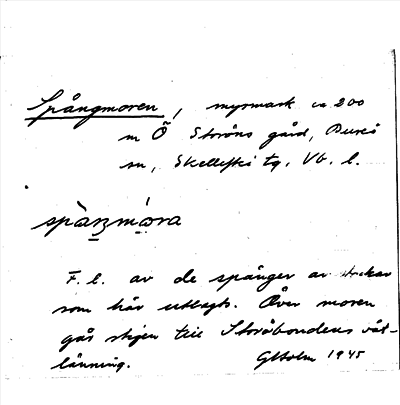 Spångmoren, myrmark ca 200
m Ö Storöns gård, Bureå
sn, Skellefteå tg, Vb. l.
spàŋmó̱ra
F. l. av de spänger av stockar
som här utlagts. Över moren
går stigen till Storöbondens våt-
länning. GHolm 1945